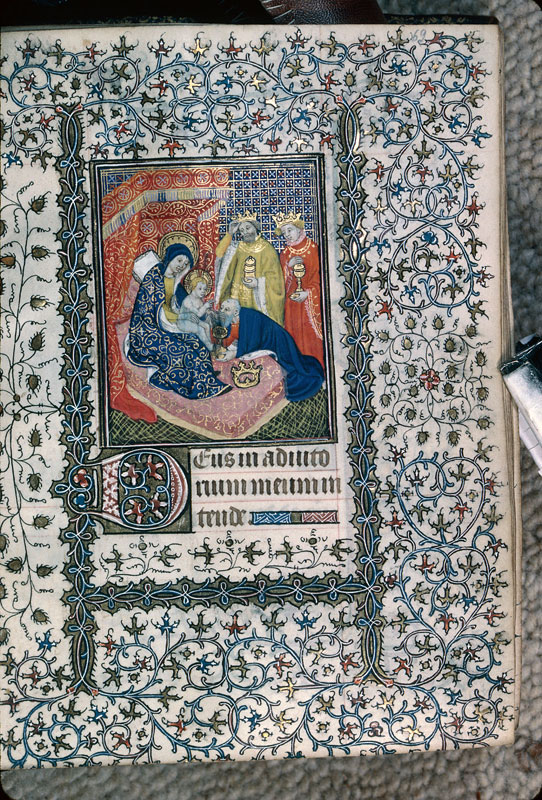 69
Deus in adiuto
rium meum in
tende